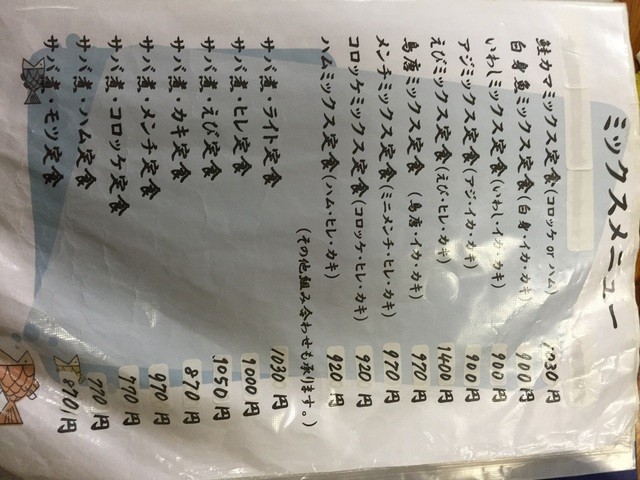 ミックスメニュー
鮭カマミックス定食(コロッケorハム) 1030円
白身魚ミックス定食(白身・イカ・カキ) 900円
いわしミックス定食(いわし・イカ・カキ) 900円
アジミックス定食(アジ・イカ・カキ) 900円
えびミックス定食(えび・ヒレ・カキ) 1400円
鳥唐ミックス定食(鳥唐・イカ・カキ) 970円
メンチミックス定食(ミニメンチ・ヒレ・カキ) 970円
コロッケミックス定食(コロッケ・ヒレ・カキ) 920円
ハムミックス定食(ハム・ヒレ・カキ) 920円
(その他組み合わせも承ります。)
サバ煮・ライト定食 1030円
サバ煮・ヒレ定食 1000円
サバ煮・えび定食 1050円
サバ煮・カキ定食 870円
サバ煮・メンチ定食 970円
サバ煮・コロッケ定食 770円
サバ煮・ハム定食 770円
サバ煮・モツ定食 870円